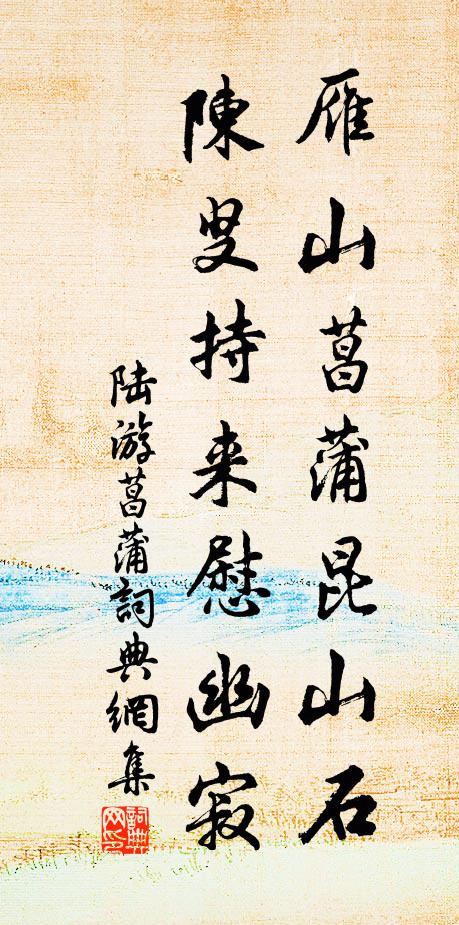 雁山菖蒲昆山石
陳叟持来慰幽寂
陆游菖蒲詞典網集
詞典网印